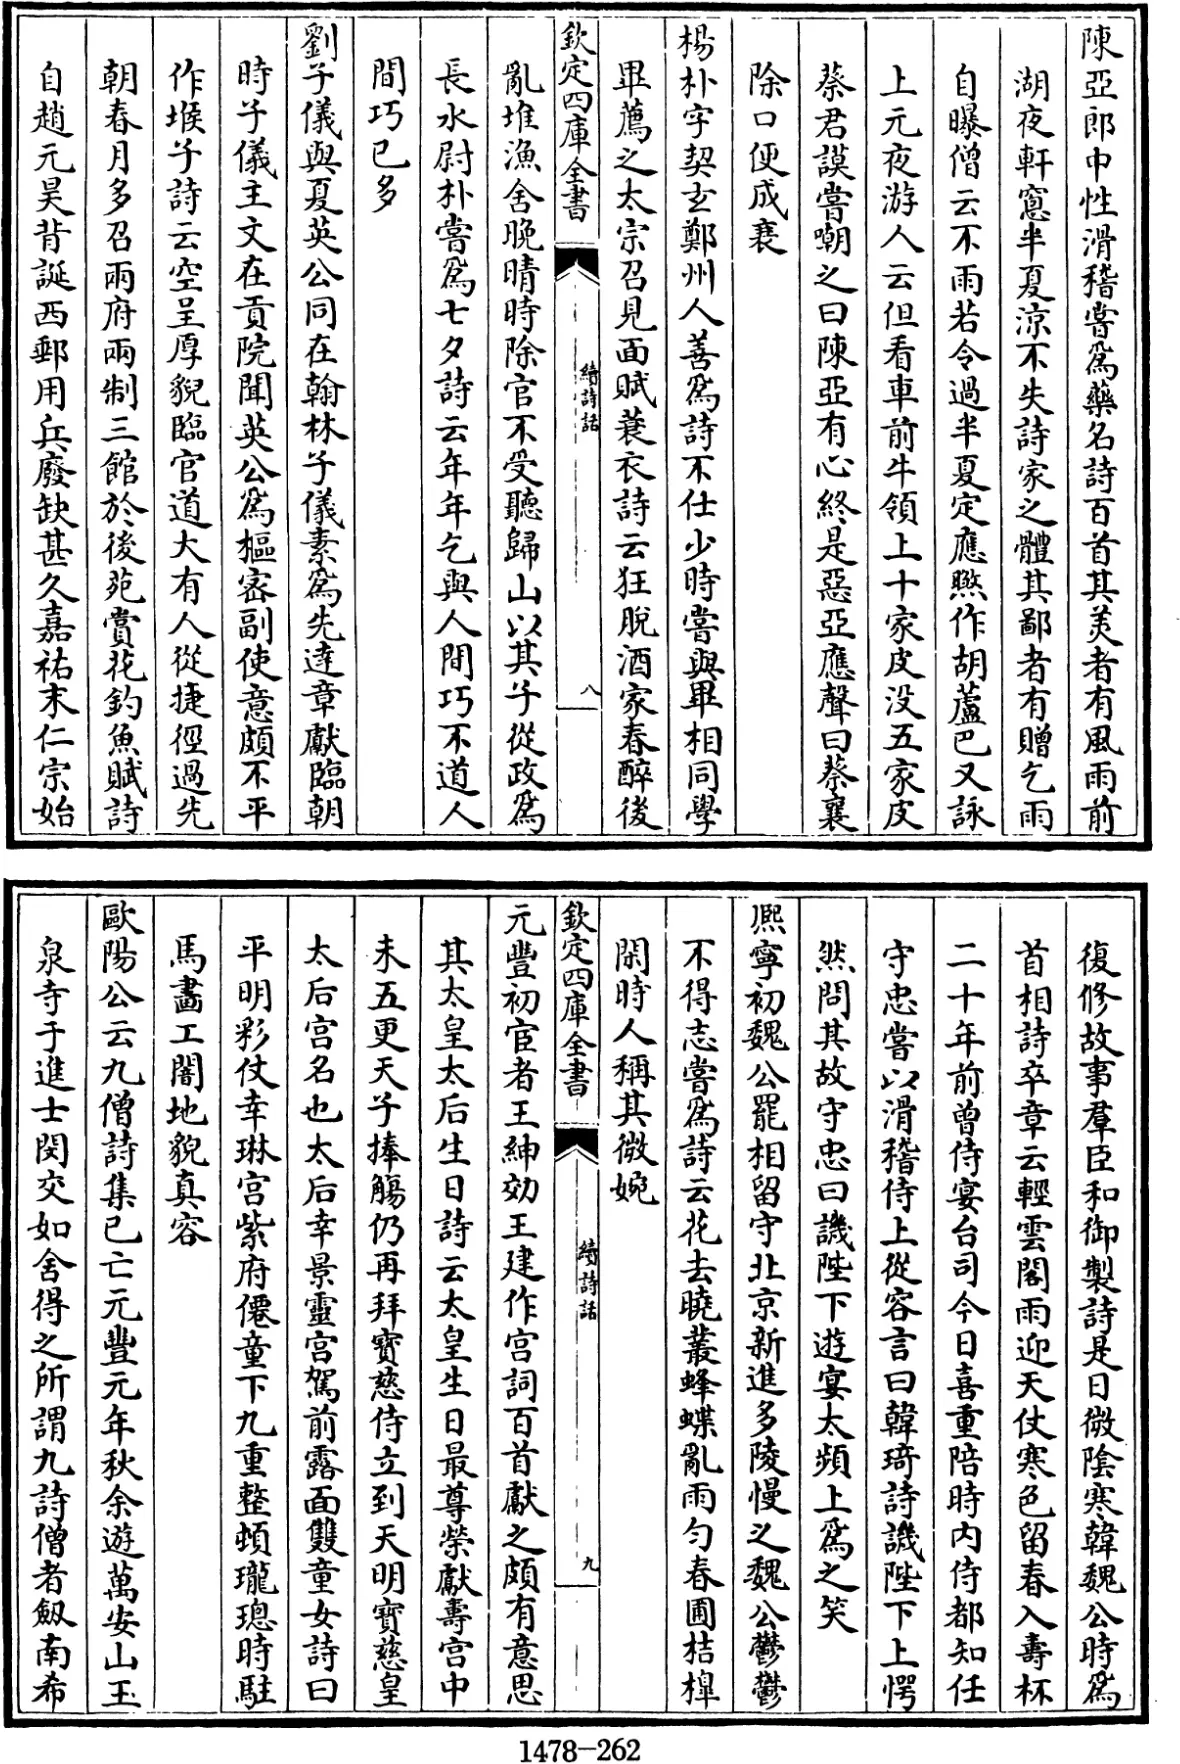 陳亞郎中性滑稽嘗爲藥名詩百首其美者有風雨前
湖夜軒窻半夏涼不失詩家之體其鄙者有贈乞雨
自曝僧云不雨若令過半夏定應㬠作胡蘆巴又詠
上元夜游人云但看車前牛領上十家皮没五家皮
蔡君謨嘗嘲之曰陳亞有心終是惡亞應聲曰蔡襄
除口便成衰
楊朴字契玄鄭州人善爲詩不仕少時嘗與畢相同學
畢薦之太宗召見面賦蓑衣詩云狂脫酒家春醉後
欽定四庫全書
續詩話
八
亂堆漁舍晚晴時除官不受聽歸山以其子從政爲
長水尉朴嘗爲七夕詩云年年乞與人間巧不道人
間巧已多
劉子儀與夏英公同在翰林子儀素爲先達章獻臨朝
時子儀主文在貢院聞英公爲樞密副使意頗不平
作堠子詩云空呈厚貌臨官道大有人從捷徑過先
朝春月多召兩府兩制三館於後苑賞花釣魚賦詩
自趙元昊背誕西郵用兵廢缺甚久嘉祐末仁宗始
復修故事羣臣和御製詩是日微陰寒韓魏公時爲
首相詩卒章云輕雲閣雨迎天仗寒色留春入壽杯
二十年前曾侍宴台司今日喜重陪時内侍都知任
守忠嘗以滑稽侍上從容言曰韓琦詩譏陛下上愕
然問其故守忠曰譏陛下遊宴太頻上爲之笑
熙寧初魏公罷相留守北京新進多陵慢之魏公鬱鬱
不得志嘗爲詩云花去曉叢蜂蝶亂雨勻春圃桔橰
閑時人稱其微婉
欽定四庫全書
續詩話
九
元豐初宦者王紳効王建作宫詞百首獻之頗有意思
其太皇太后生日詩云太皇生日最尊榮獻壽宫中
未五更天子捧觴仍再拜寳慈侍立到天明寳慈皇
太后宫名也太后幸景靈宫駕前露面雙童女詩曰
平明彩仗幸琳宫紫府僊童下九重整頓瓏璁時駐
馬畵工闇地貌真容
歐陽公云九僧詩集已亡元豐元年秋余遊萬安山玉
泉寺于進士閔交如舍得之所謂九詩僧者劔南希
1478-262